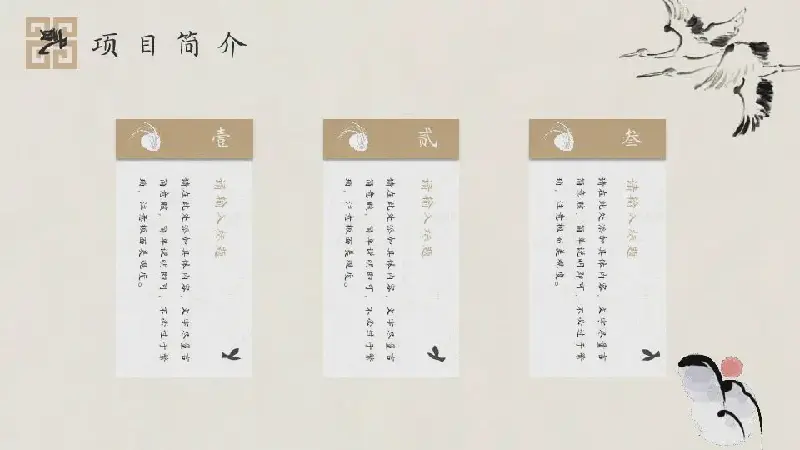 贰 项目简介
壹
请输入标题
请在此处添加具体内容，文字尽量言
简意赅，简单说明即可，不必过于繁
琐，注意板面美观度。
贰
请输入标题
请在此处添加具体内容，文字尽量言
简意赅，简单说明即可，不必过于繁
琐，注意板面美观度。
叁
请输入标题
请在此处添加具体内容，文字尽量言
简意赅，简单说明即可，不必过于繁
琐，注意板面美观度。